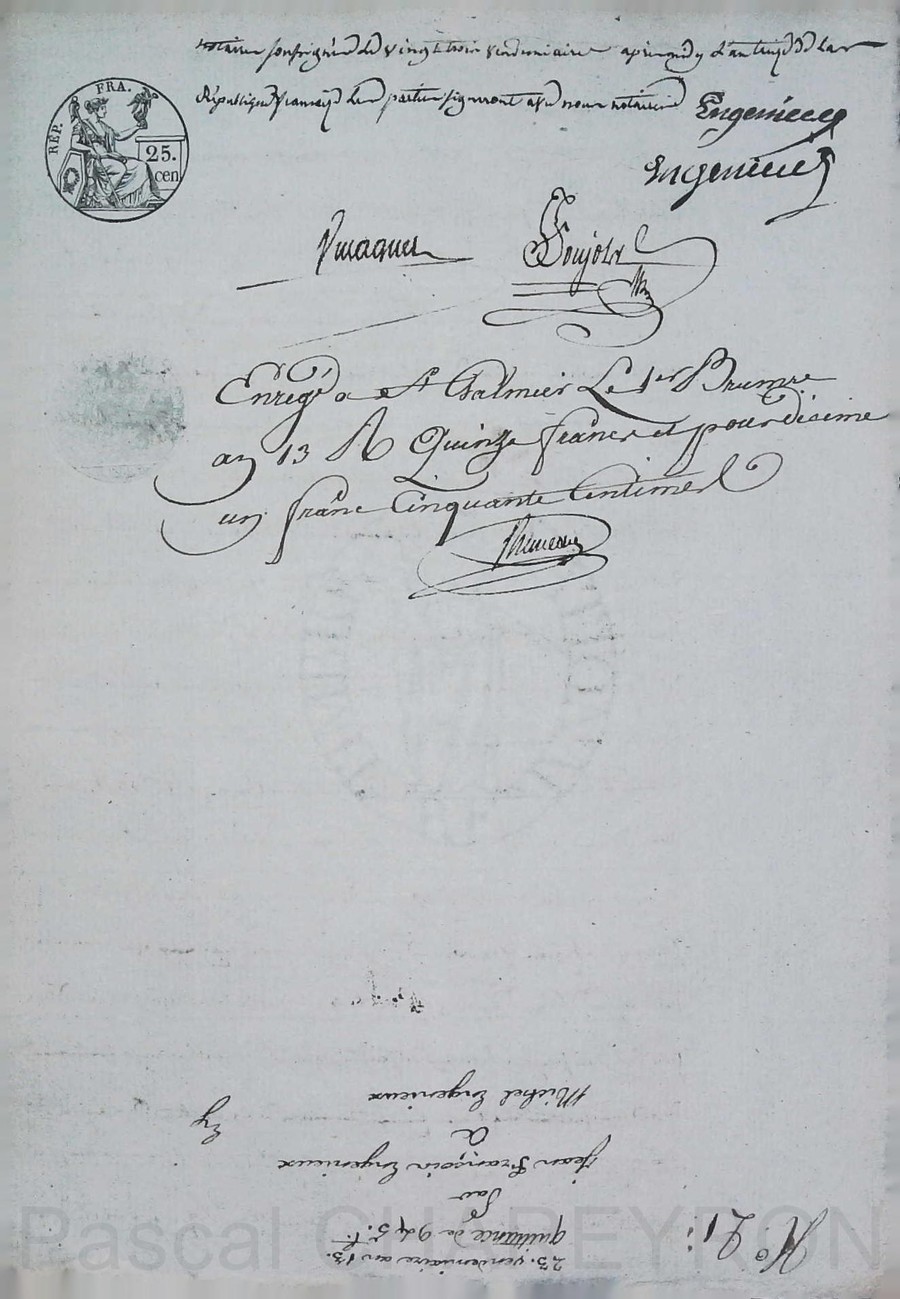 notaires soussignés le vingt trois vendemiaire après midy l'an treize de la
République française les parties signeront avec nous notaires
Engenieux
Engenieux
RÉP. FRA.
25.
cen
Pujols
Enregé a St Galmier Le 1er Brumre
an 13 R Quinze francs et pour décime
un franc Cinquante Centimes
23. vendemiaire an 13.
quittance de 945. f.
Par
jean François Engenieux
a
Michel Engenieux
No 21
Pascal CHAPEYRON